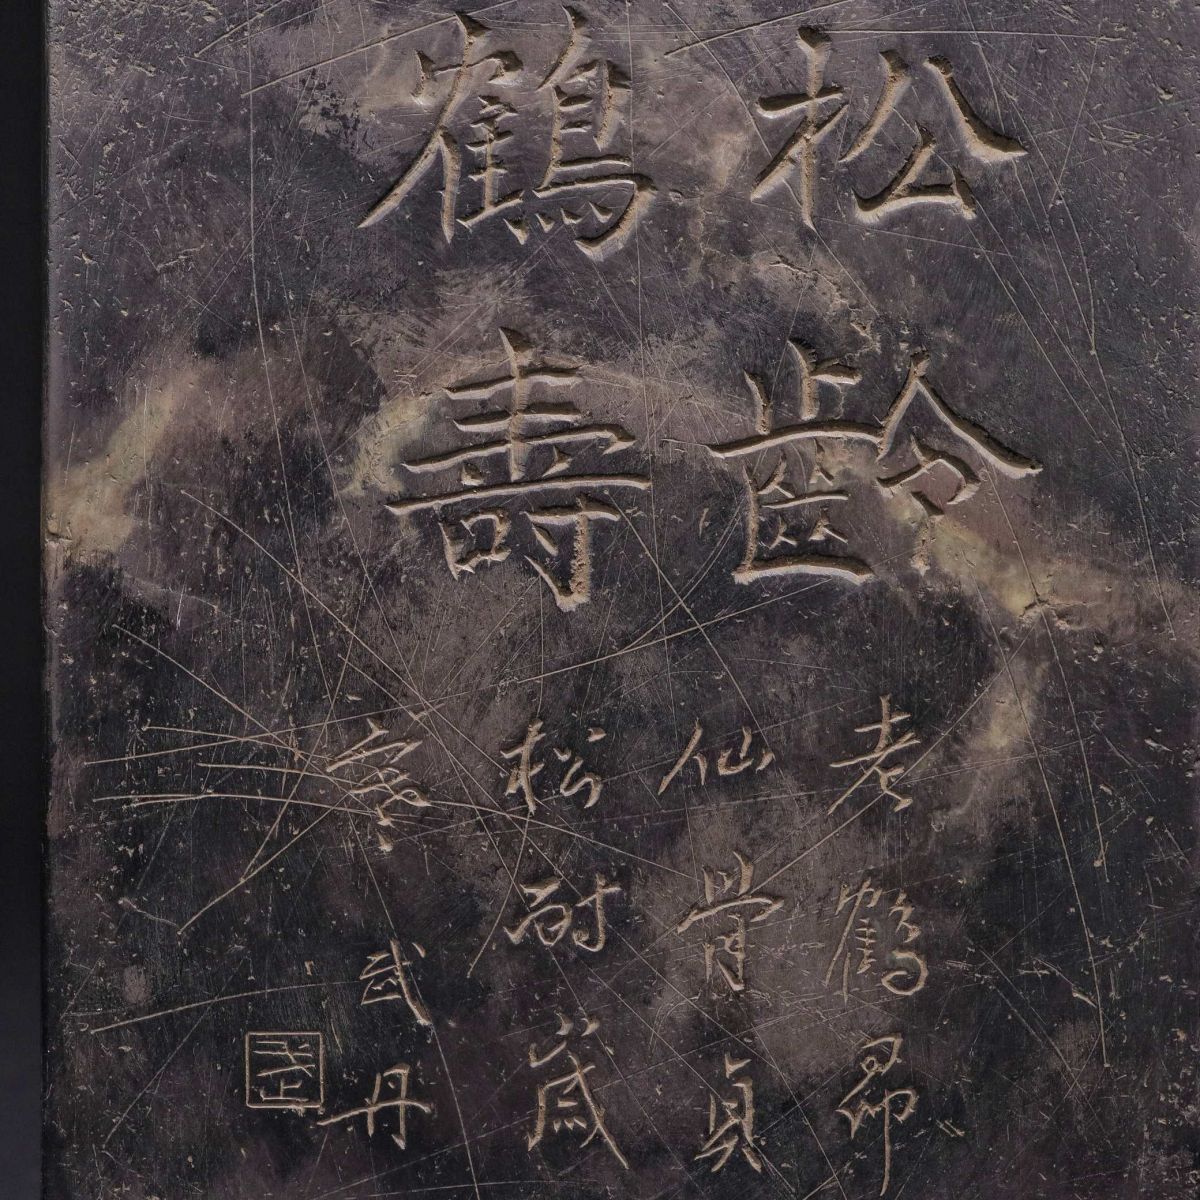 松齡
鶴壽
老鶴昂
仙骨貞
松耐歲
寒 武丹